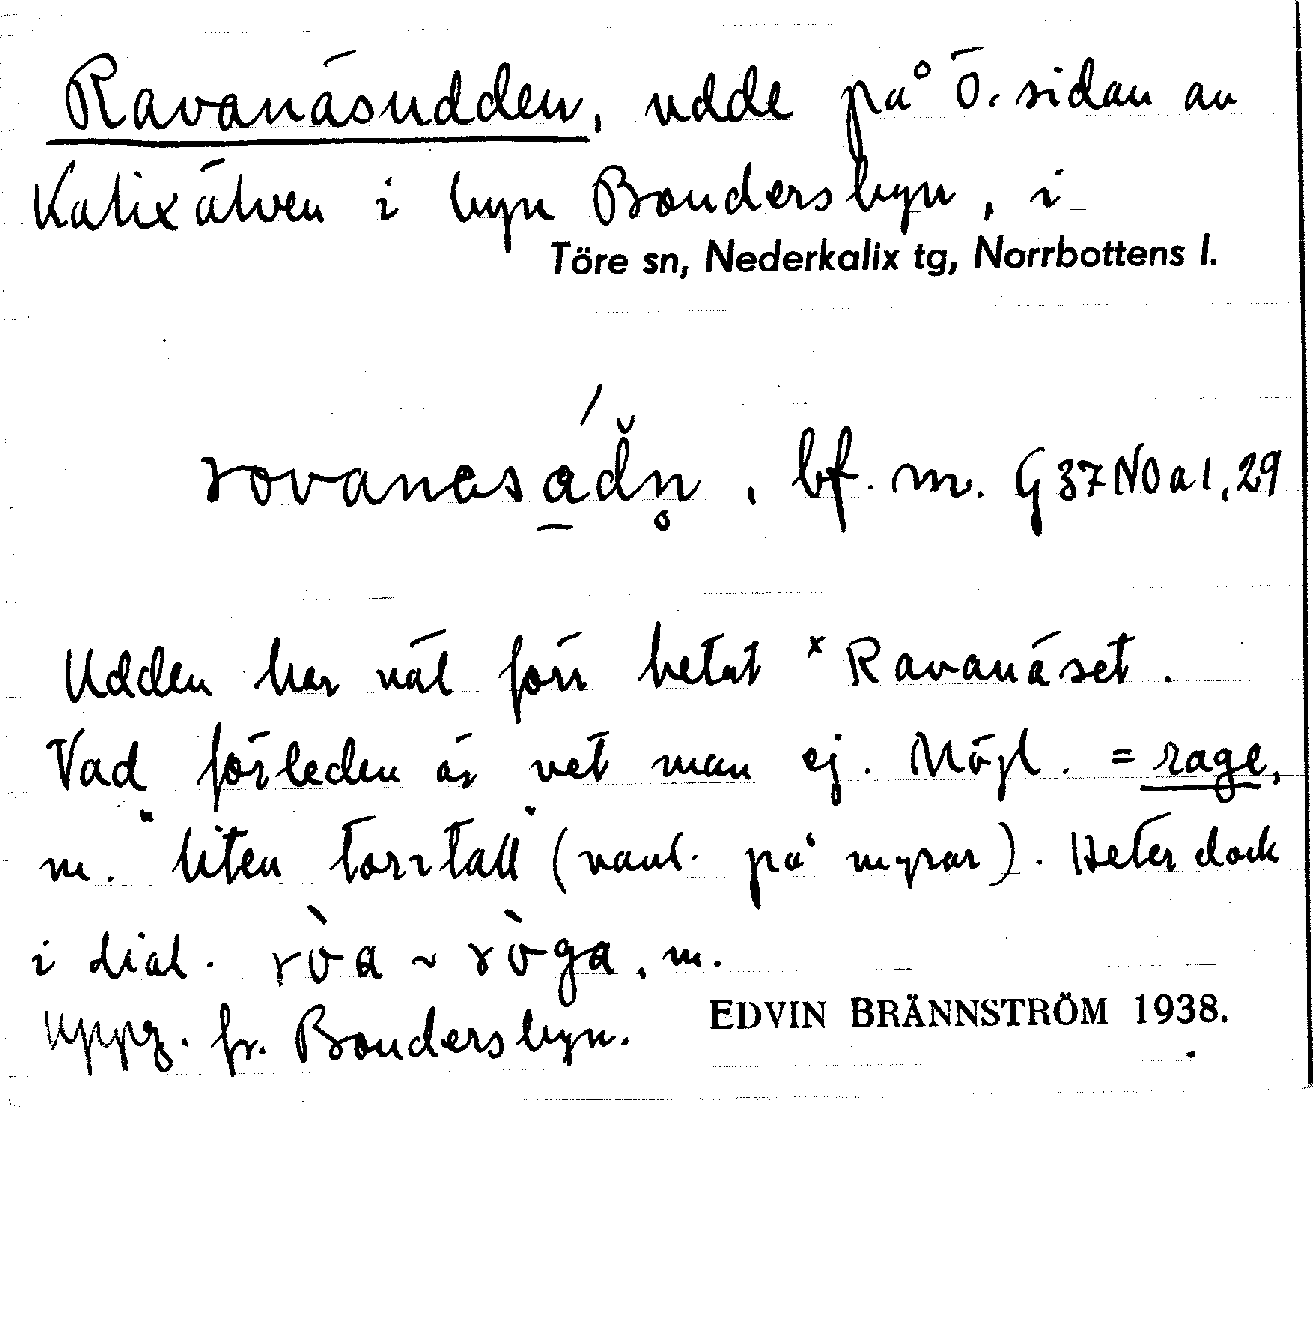 Ravanäsudden, udde på Ö. sidan av
Kalixälven i byn Bondersbyn, i
Töre sn, Nederkalix tg, Norrbottens l.
bf. m. G 37 NO a 1, 29
Udden har väl förr hetat ˣRavanäset.
Vad förleden är vet man ej. Möjl. = rage,
m. "liten torrtall" (vanl. på myrar). Heter dock
i dial. ròa ~ ròga, m.
Uppg. fr. Bondersbyn.
EDVIN BRÄNNSTRÖM 1938.